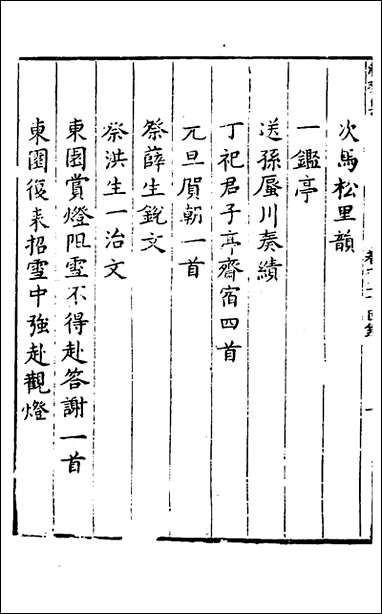 次馬松里韻
一鑑亭
送孫蜃川奏績
丁祀君子亭齋宿四首
元旦賀朝一首
祭薛生銳文
祭洪生一治文
東園賞燈阻雪不得赴答謝一首
東園復來招雪中強赴觀燈